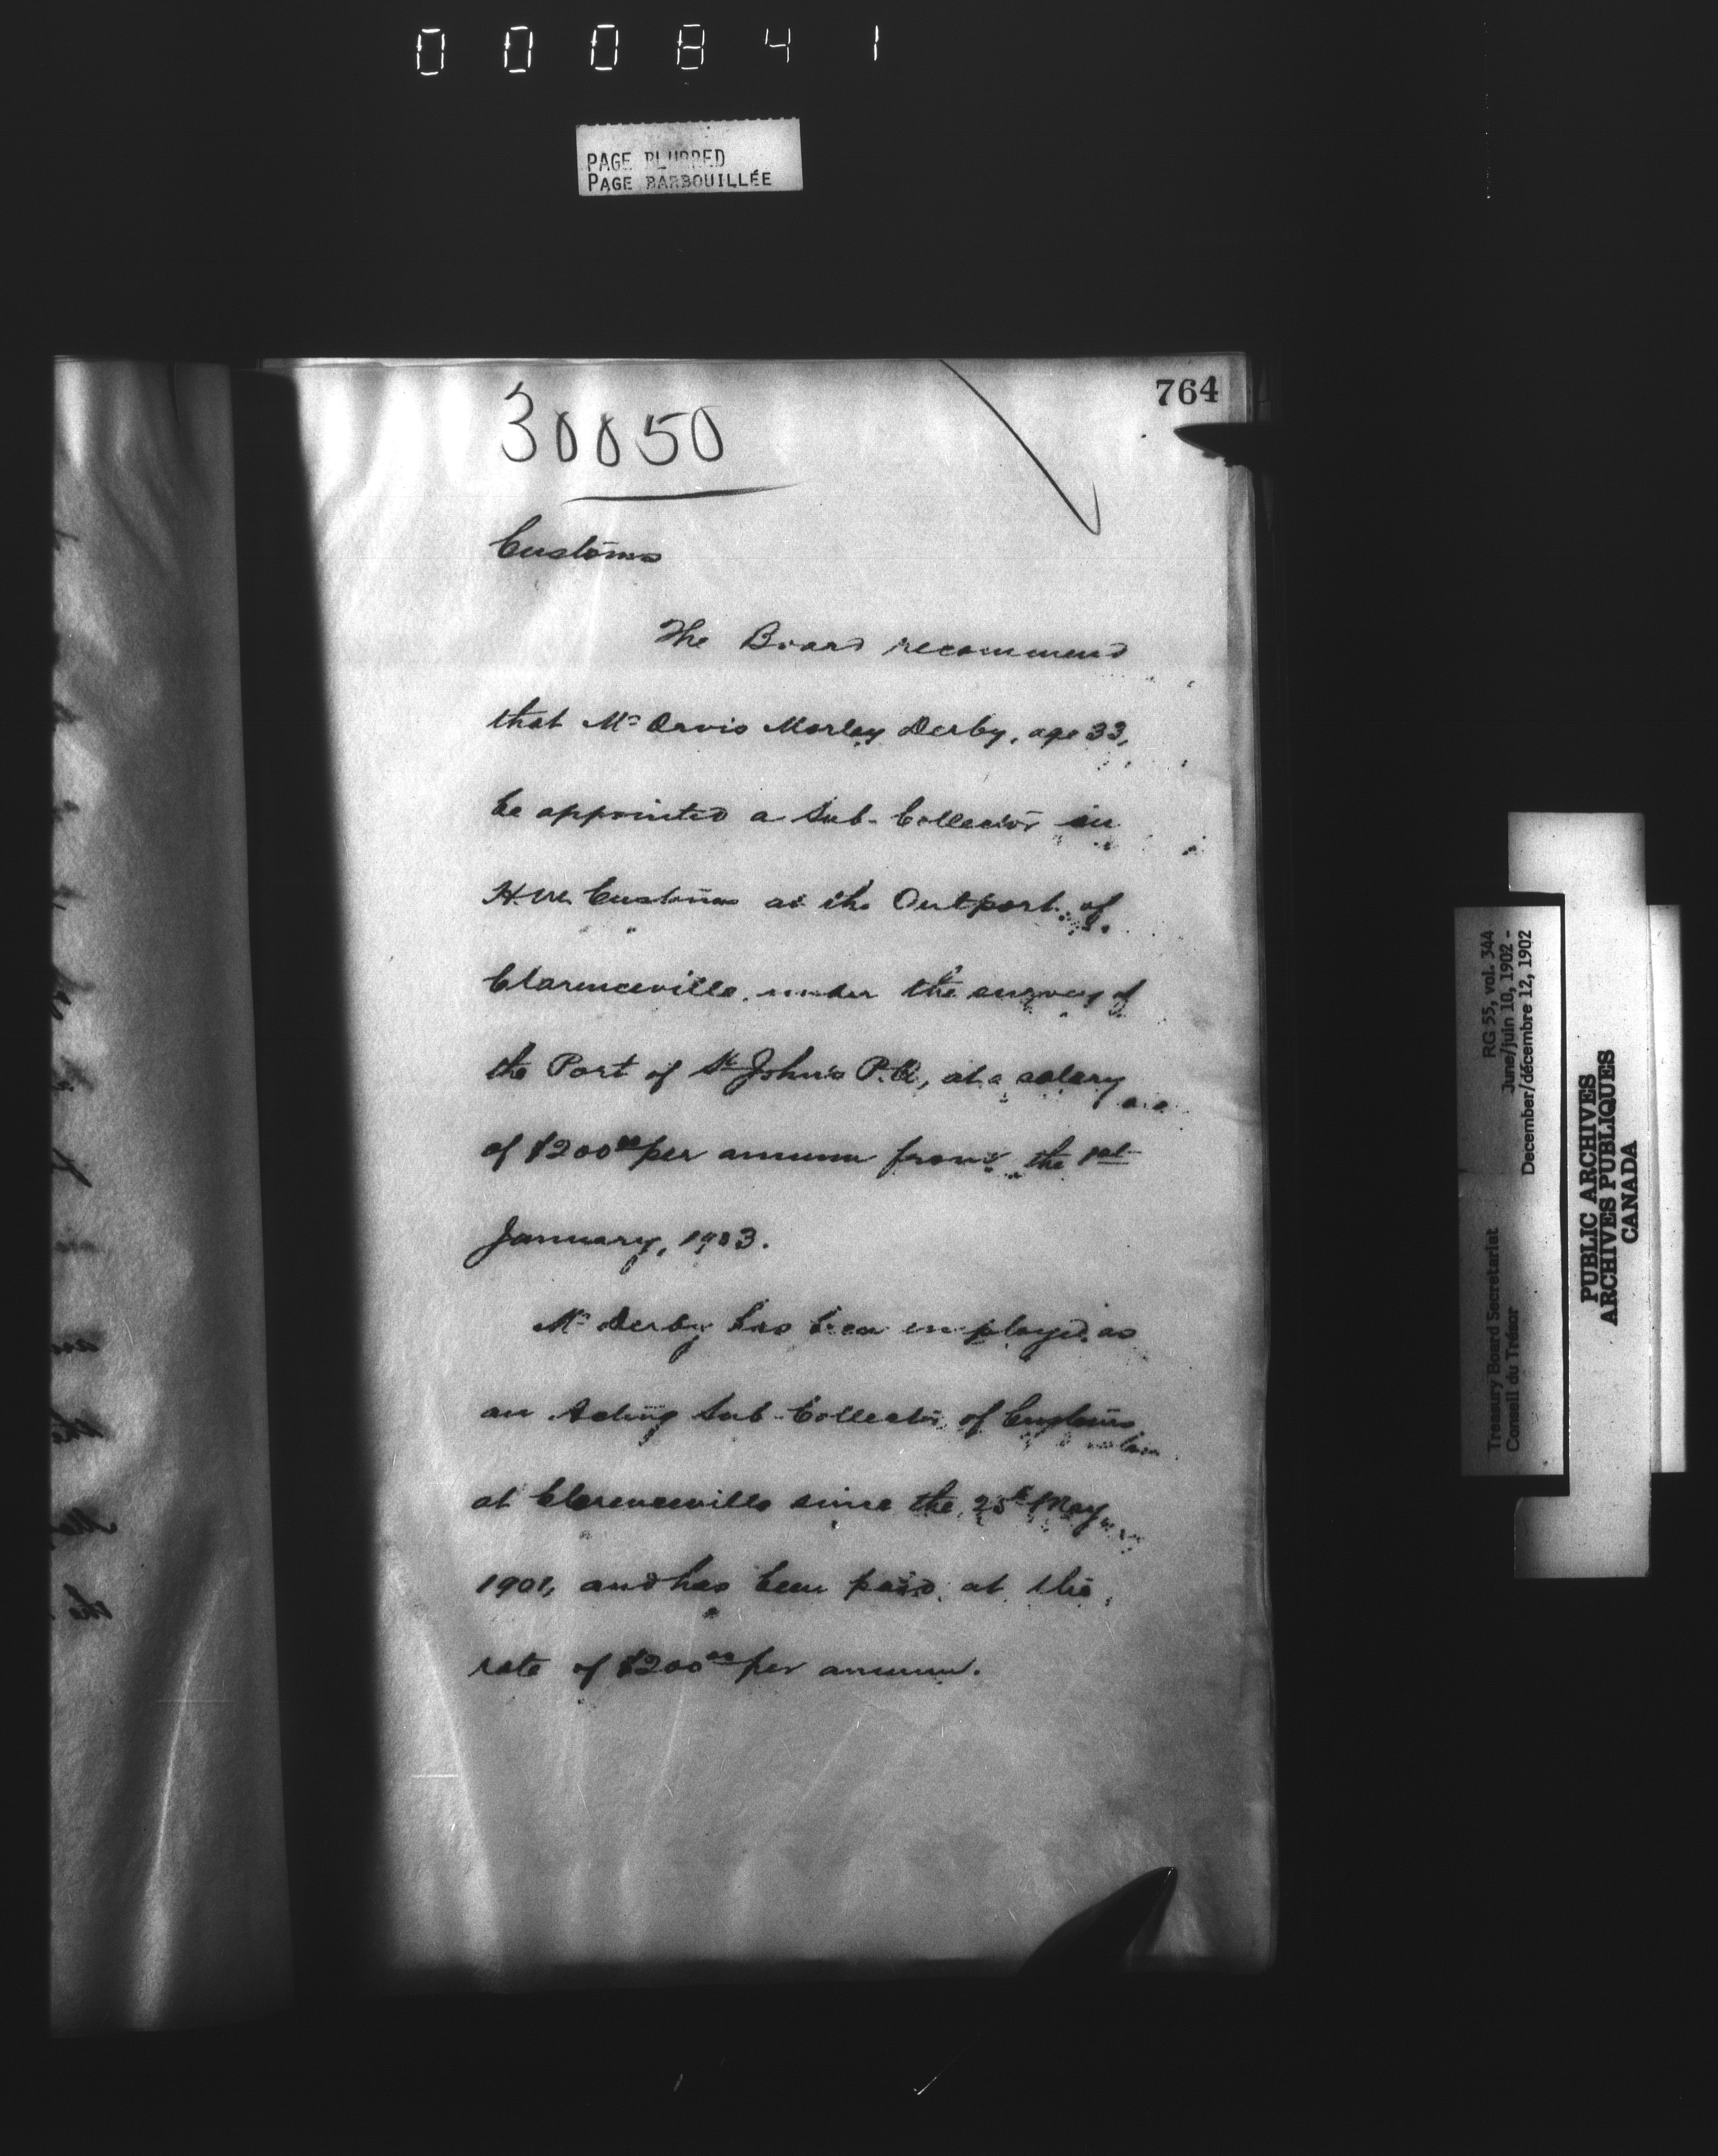 000841
PAGE BLURRED
PAGE BARBOUILLÉE
764
30050
Customs
The Board recommend
that Mr Orvis Morley Derby, age 33,
be appointed a Sub-Collector in
H.M. Customs at the Outport of
Clarenceville, under the survey of
the Port of St. John's P.Q., at a salary
of $200 00 per annum from the 1st
January, 1903.
Mr Derby has been employed as
an Acting Sub-Collector of Customs
at Clarenceville since the 25th May
1901, and has been paid at the
rate of $200 00 per annum.
RG 55, vol. 344
June/juin 10, 1902 -
December/décembre 12, 1902
Treasury Board Secretariat
Conseil du Trésor
PUBLIC ARCHIVES
ARCHIVES PUBLIQUES
CANADA